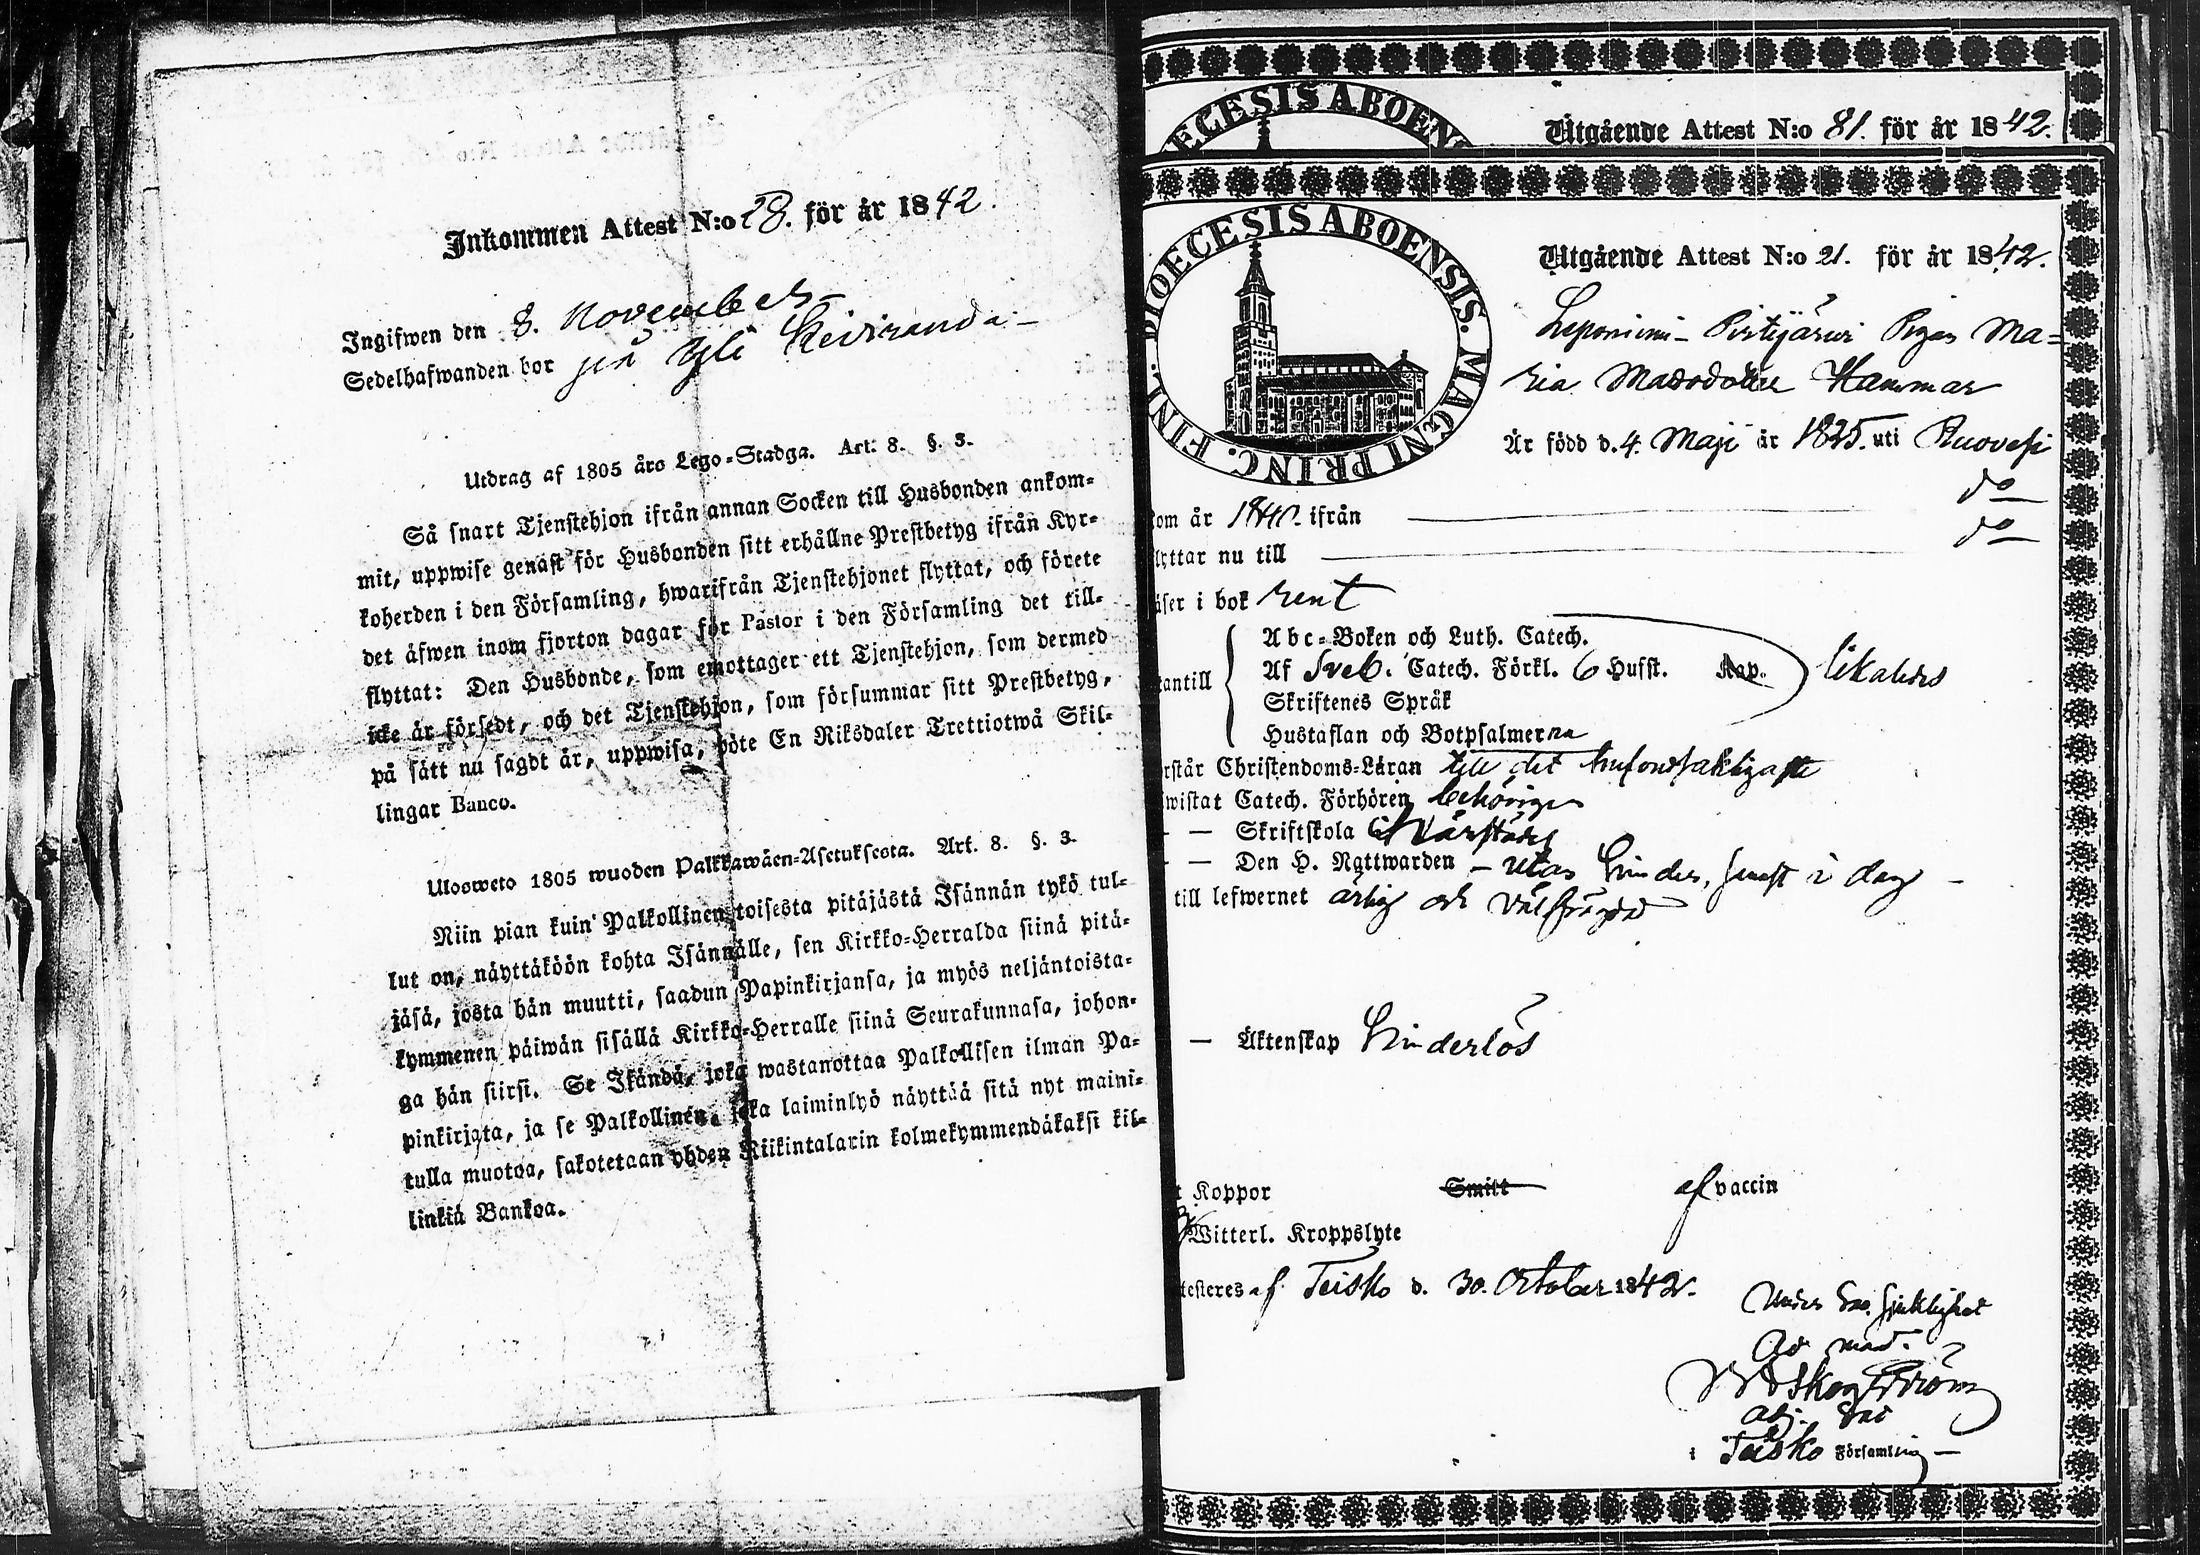 Inkommen Attest N:o 28. för år 1842.
Ingifwen den 8. November
Sedelhafwanden bor på Yli Keiviranda
Utdrag af 1805 års Lego-Stadga. Art. 8. §. 3.
Så snart Tjenstehjon ifrån annan Socken till Husbonden ankom-
mit, uppwise genast för Husbonden sitt erhållne Prestbetyg ifrån Kyr-
koherden i den Församling, hwarifrån Tjenstehjonet flyttat, och förete
det äfwen inom fjorton dagar för Pastor i den Församling det till-
flyttat: Den Husbonde, som emottager ett Tjenstehjon, som dermed
icke är försedt, och det Tjenstehjon, som försummar sitt Prestbetyg,
på sätt nu sagdt är, uppwisa, böte En Riksdaler Trettiotwå Skil-
lingar Banco.
Ulosweto 1805 wuoden Palkkawäen-Asetuksesta. Art. 8. §. 3.
Niin pian kuin Palkollinen toisesta pitäjästä Isännän tykö tul-
lut on, näyttäköön kohta Isännälle, sen Kirkko-Herralda siinä pitä-
jäsä, josta hän muutti, saadun Papinkirjansa, ja myös neljäntoista-
kymmenen päiwän sisällä Kirkko-Herralle siinä Seurakunnasa, johon-
ga hän siirsi. Se Isändä, joka wastanottaa Palkollksen ilman Pa-
pinkirjata, ja se Palkollinen, joka laiminlyö näyttää sitä nyt maini-
tulla muotoa, sakotetaan yhden Riikintalarin kolmekymmendäkaksi kil-
linkiä Bankoa.
OECESIS ABOEN
Utgående Attest N:o 81. för år 1842.
DIOECESIS ABOENSIS. MAGNI PRINC. FINL.
Utgående Attest N:o 21. för år 1842.
Leponiemi - Pirttijärwi Pigan Ma=
ria Matsdotter Hammar
Är född d. 4. Maji år 1825. uti Ruovesi
kom år 1840. ifrån do
lyttar nu till do
äser i bok rent
Abc-Boken och Luth. Catech.
antill Af Sveb. Catech. Förkl. 6 Hufst. Kap. likaledes
Skriftenes Språk
Hustaflan och Botpsalmerna
rstår Christendoms-Läran till det hufvudsakligaste
wistat Catech. Förhören behörigen
— Skriftskola
— Den H. Nattwarden - utan hinder, senast i dag -
till lefwernet ärlig och välfrägdad
— Äktenskap hinderlös
t Koppor Smitt af vaccin
Witterl. Kroppslyte
testeres af Teisko d. 30. October 1842.
Ad mand.
Skogström
adj.
i Teisko Församling -